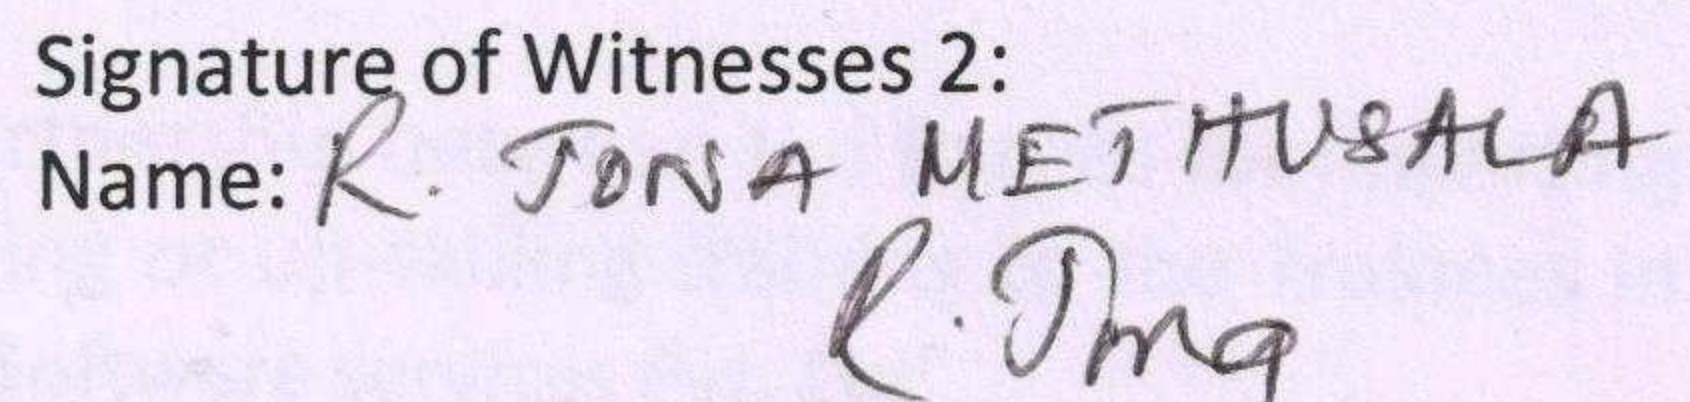 Signature of Witnesses 2:
Name: R. JONA METHUSALA
R. Jona